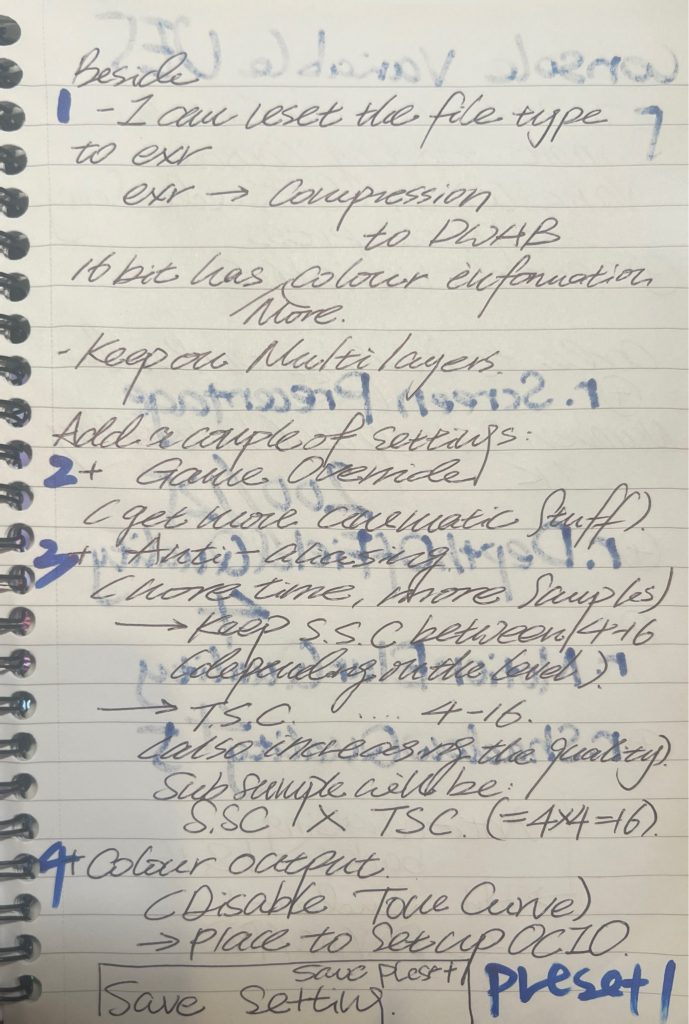 Beside
1 - I can reset the file type
to exr
exr → Compression
to DWAB
16 bit has colour information
More.
- Keep on Multilayers.
Add a couple of settings:
2 + Game Override
(get more cinematic stuff).
3 + Anti-aliasing
(more time, more samples)
→ Keep S.S.C between 4-16
(depending on the level)
→ T.S.C. .... 4-16.
(also increasing the quality).
Subsample will be:
S.SC X TSC. (=4x4=16).
4+ Colour output.
(Disable Tone Curve)
→ Place to Set up OCIO.
save preset
Save Setting.
preset 1